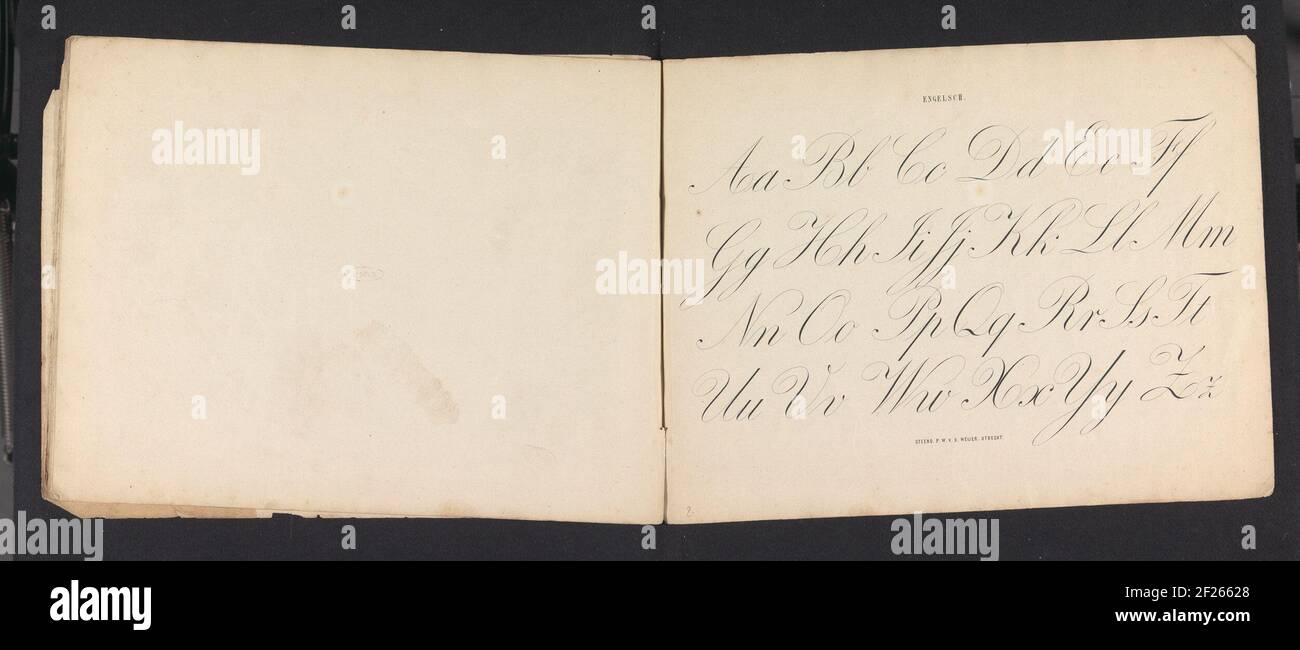 ENGELSCH.
Aa Bb Cc Dd Ee Ff
Gg Hh Ii Jj Kk Ll Mm
Nn Oo Pp Qq Rr Ss Tt
Uu Vv Ww Xx Yy Zz
STEEND. P. W. V. D. WEIJER, UTRECHT.
2
alamy
alamy
alamy
alamy
Image ID: 2F26628
www.alamy.com